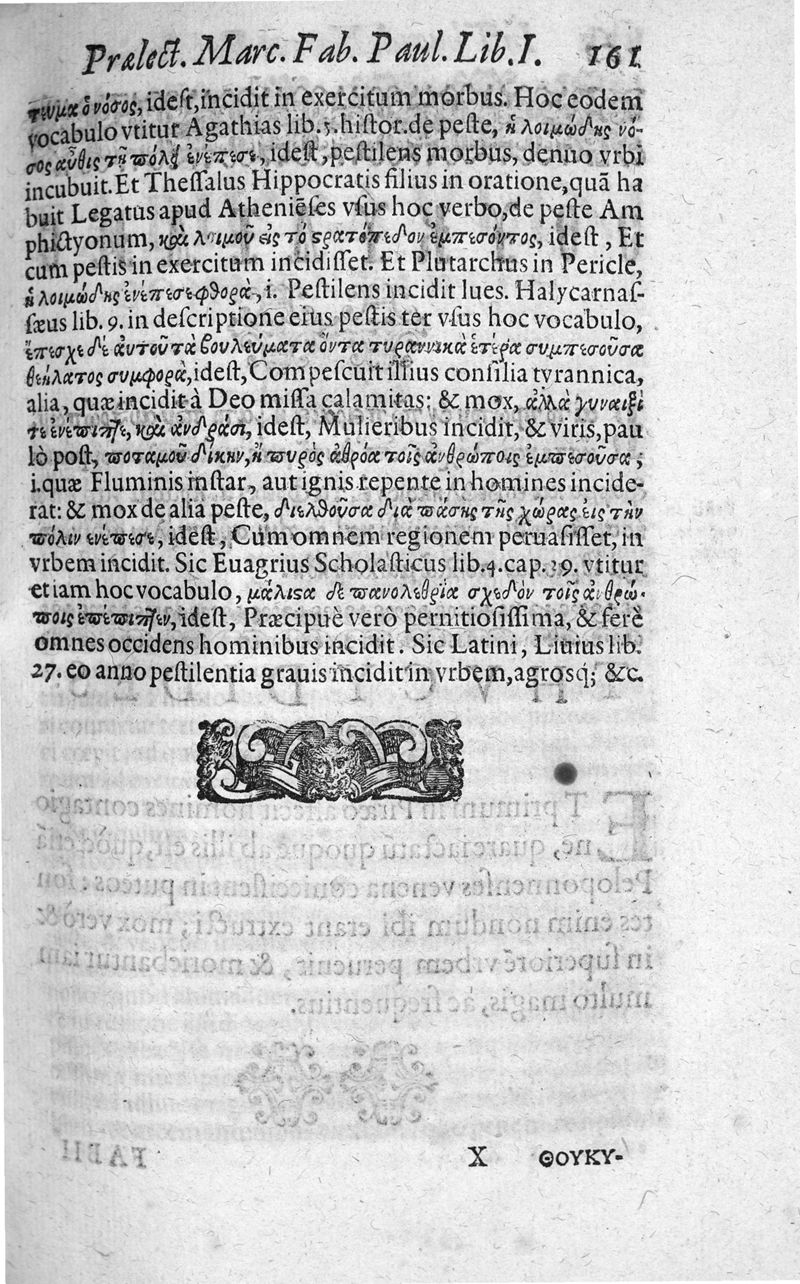 Prælect. Marc. Fab. Paul. Lib. I. 161
τωμα ὁ νόσος, idest, incidit in exercitum morbus. Hoc eodem
vocabulo vtitur Agathias lib. 5. histor. de peste, ἡ λοιμώδης νό-
σος αὖθις τῇ πόλει ἐνέπεσε, idest, pestilens morbus, denuo vrbi
incubuit. Et Thessalus Hippocratis filius in oratione, quã ha
buit Legatus apud Atheniẽses vsus hoc verbo, de peste Am
phictyonum, καὶ λοιμοῦ εἰς τὸ στρατόπεδον ἐμπεσόντος, idest, Et
cum pestis in exercitum incidisset. Et Plutarchus in Pericle,
ἡ λοιμώδης ἐνέπεσε φθορὰ, i. Pestilens incidit lues. Halycarnas-
sæus lib. 9. in descriptione eius pestis ter vsus hoc vocabulo,
ἔπεσχε δὲ ἀυτοῦ τὰ βουλεύματα ὄντα τυραννικὰ ἑτέρα συμπεσοῦσα
θεήλατος συμφορὰ, idest, Compescuit illius consilia tyrannica,
alia, quæ incidit à Deo missa calamitas: & mox, ἀλλὰ γυναιξί
τε ἐνέπιπτε, καὶ ἀνδράσι, idest, Mulieribus incidit, & viris, pau
lò post, ποταμοῦ δίκην, ἢ πυρὸς ἀθρόα τοῖς ἀνθρώποις ἐμπεσοῦσα,
i. quæ Fluminis instar, aut ignis repente in homines incide-
rat: & mox de alia peste, διελθοῦσα διὰ πάσης τῆς χώρας εἰς τὴν
πόλιν ἐνέπεσε, idest, Cum omnem regionem peruasisset, in
vrbem incidit. Sic Euagrius Scholasticus lib. 4. cap. 29. vtitur
etiam hoc vocabulo, μάλιστα δὲ πανολεθρία σχεδὸν τοῖς ἀνθρώ-
ποις ἐπέπιπτεν, idest, Præcipuè verò pernitiosissima, & ferè
omnes occidens hominibus incidit. Sic Latini, Liuius lib.
27. eo anno pestilentia grauis incidit in vrbem, agrosq; &c.
X ΘΟΥΚΥ-